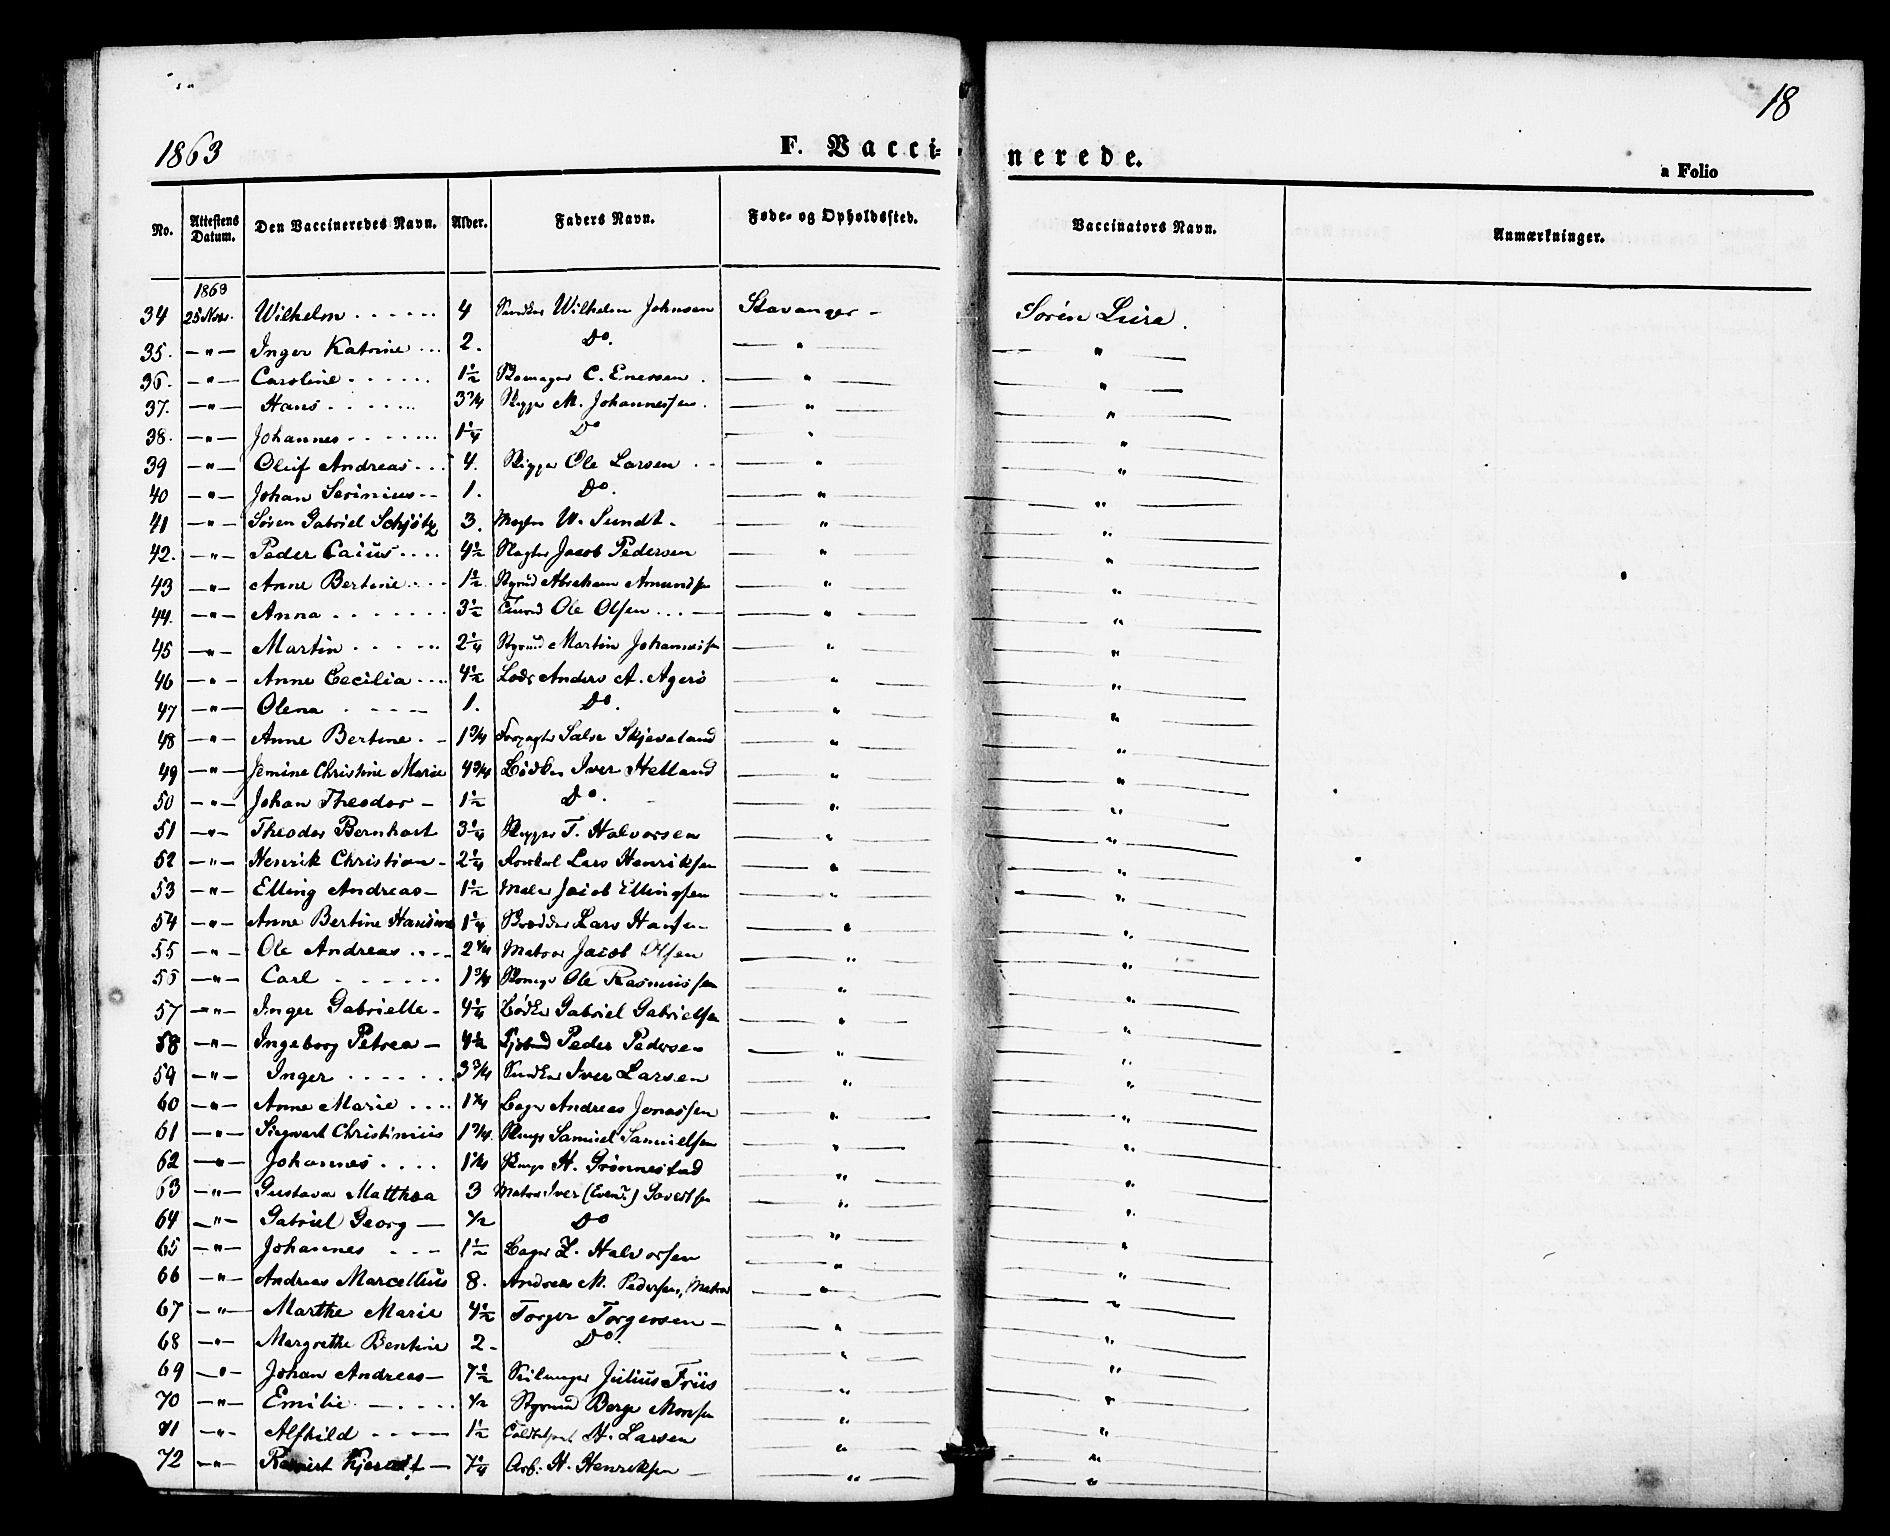 18
1863 F. Vacci- nerede.
a Folio
No. Attestens Datum. Den Vaccineredes Navn. Alder. Faders Navn. Føde- og Opholdssted. Vaccinators Navn. Anmærkninger.
1863
34 25 Nov. Wilhelm 4 Wilhelm Johnsen Stavanger Sørén Lura.
35. -"- Inger Katrine 2. Do. " "
36. -"- Caroline 1½ C. Enersen " "
37. -"- Hans 3¾ M. Johannessen " "
38. -"- Johannes 1¼ Do " "
39 -"- Oluf Andreas 4. Ole Larsen " "
40 -"- Johan Serinius 1. Do. " "
41 -"- Søren Gabriel Schjøtz 3. W. Sundt " "
42. -"- Peder Caius 4½ Jacob Pedersen " "
43 -"- Anne Bertine 1½ Styrmd Abraham Amundsen " "
44. -"- Anna 3½ Ole Olsen " "
45 -"- Martin 2¼ Styrmd Martin Johannessen " "
46 -"- Anne Cecilia 4½ Lods Anders A. Agerö " "
47 -"- Olena 1. Do. " "
48 -"- Anne Bertine 1¾ Salve Skjæveland " "
49 -"- Jemine Christine Marie 4¾ Bödker Iver Helland " "
50 -"- Johan Theodor 1½ Do. " "
51 -"- Theodor Bernhart 3¼ T. Halvorsen " "
52 -"- Henrik Christian 2¼ Lars Henriksen " "
53 -"- Elling Andreas 1½ Maler Jacob Ellingsen " "
54 -"- Anne Bertine Hansine 1¼ Lars Hansen " "
55 -"- Ole Andreas 2¼ Matros Jacob Olsen " "
56 -"- Carl 1¾ Ole Rasmussen " "
57 -"- Inger Gabrielle 4¼ Bödker Gabriel Gabrielsen " "
58 -"- Ingeborg Petrea 4½ Peder Pedersen " "
59 -"- Inger 3¾ Iver Larsen " "
60 -"- Anne Marie 1¾ Bager Andreas Jonassen " "
61 -"- Siegwart Christinius 1¾ Samuel Samuelsen " "
62 -"- Johannes 1¾ H. Grönnestad " "
63 -"- Gustava Matthea 3 Matros Iver (Even?) Govertsen " "
64 -"- Gabriel Georg ½ Do " "
65 -"- Johannes 1½ Bager Z. Halvorsen " "
66 -"- Andreas Marcellius 8. Andreas M. Pedersen, Matros " "
67 -"- Marthe Marie 4½ Torger Torgersen " "
68 -"- Margrethe Bentine 2 Do. " "
69 -"- Johan Andreas 7½ Julius Friis " "
70 -"- Emilie ½ Styrmd Berge Monsen " "
71 -"- Alfhild 1½ H. Larsen " "
72 -"- 7¼ Arb. H. Henriksen " "